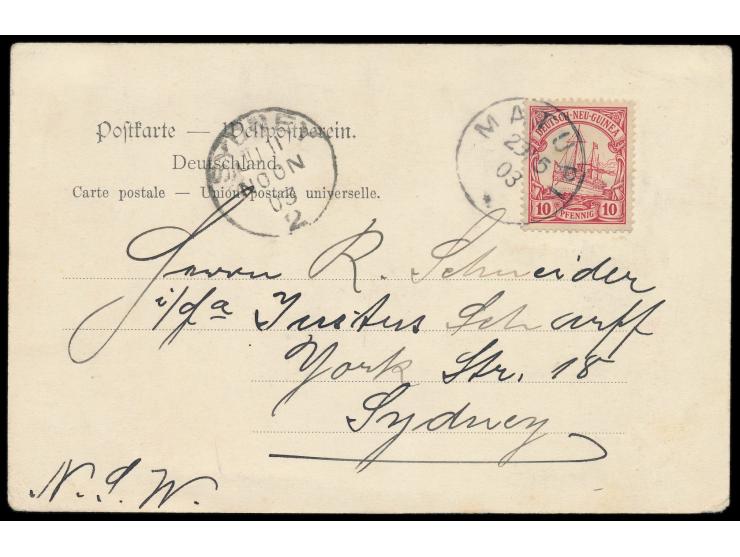 Postkarte — Weltpostverein.
Deutschland.
Carte postale — Union postale universelle.
SYDNEY
JU 11
NOON
03
2
MATUPI
29/5
03
*
DEUTSCH-NEU-GUINEA
10 PFENNIG 10
Herrn R. Schneider
i/fa Justus Scharff
York Str. 18
Sydney
N.S.W.